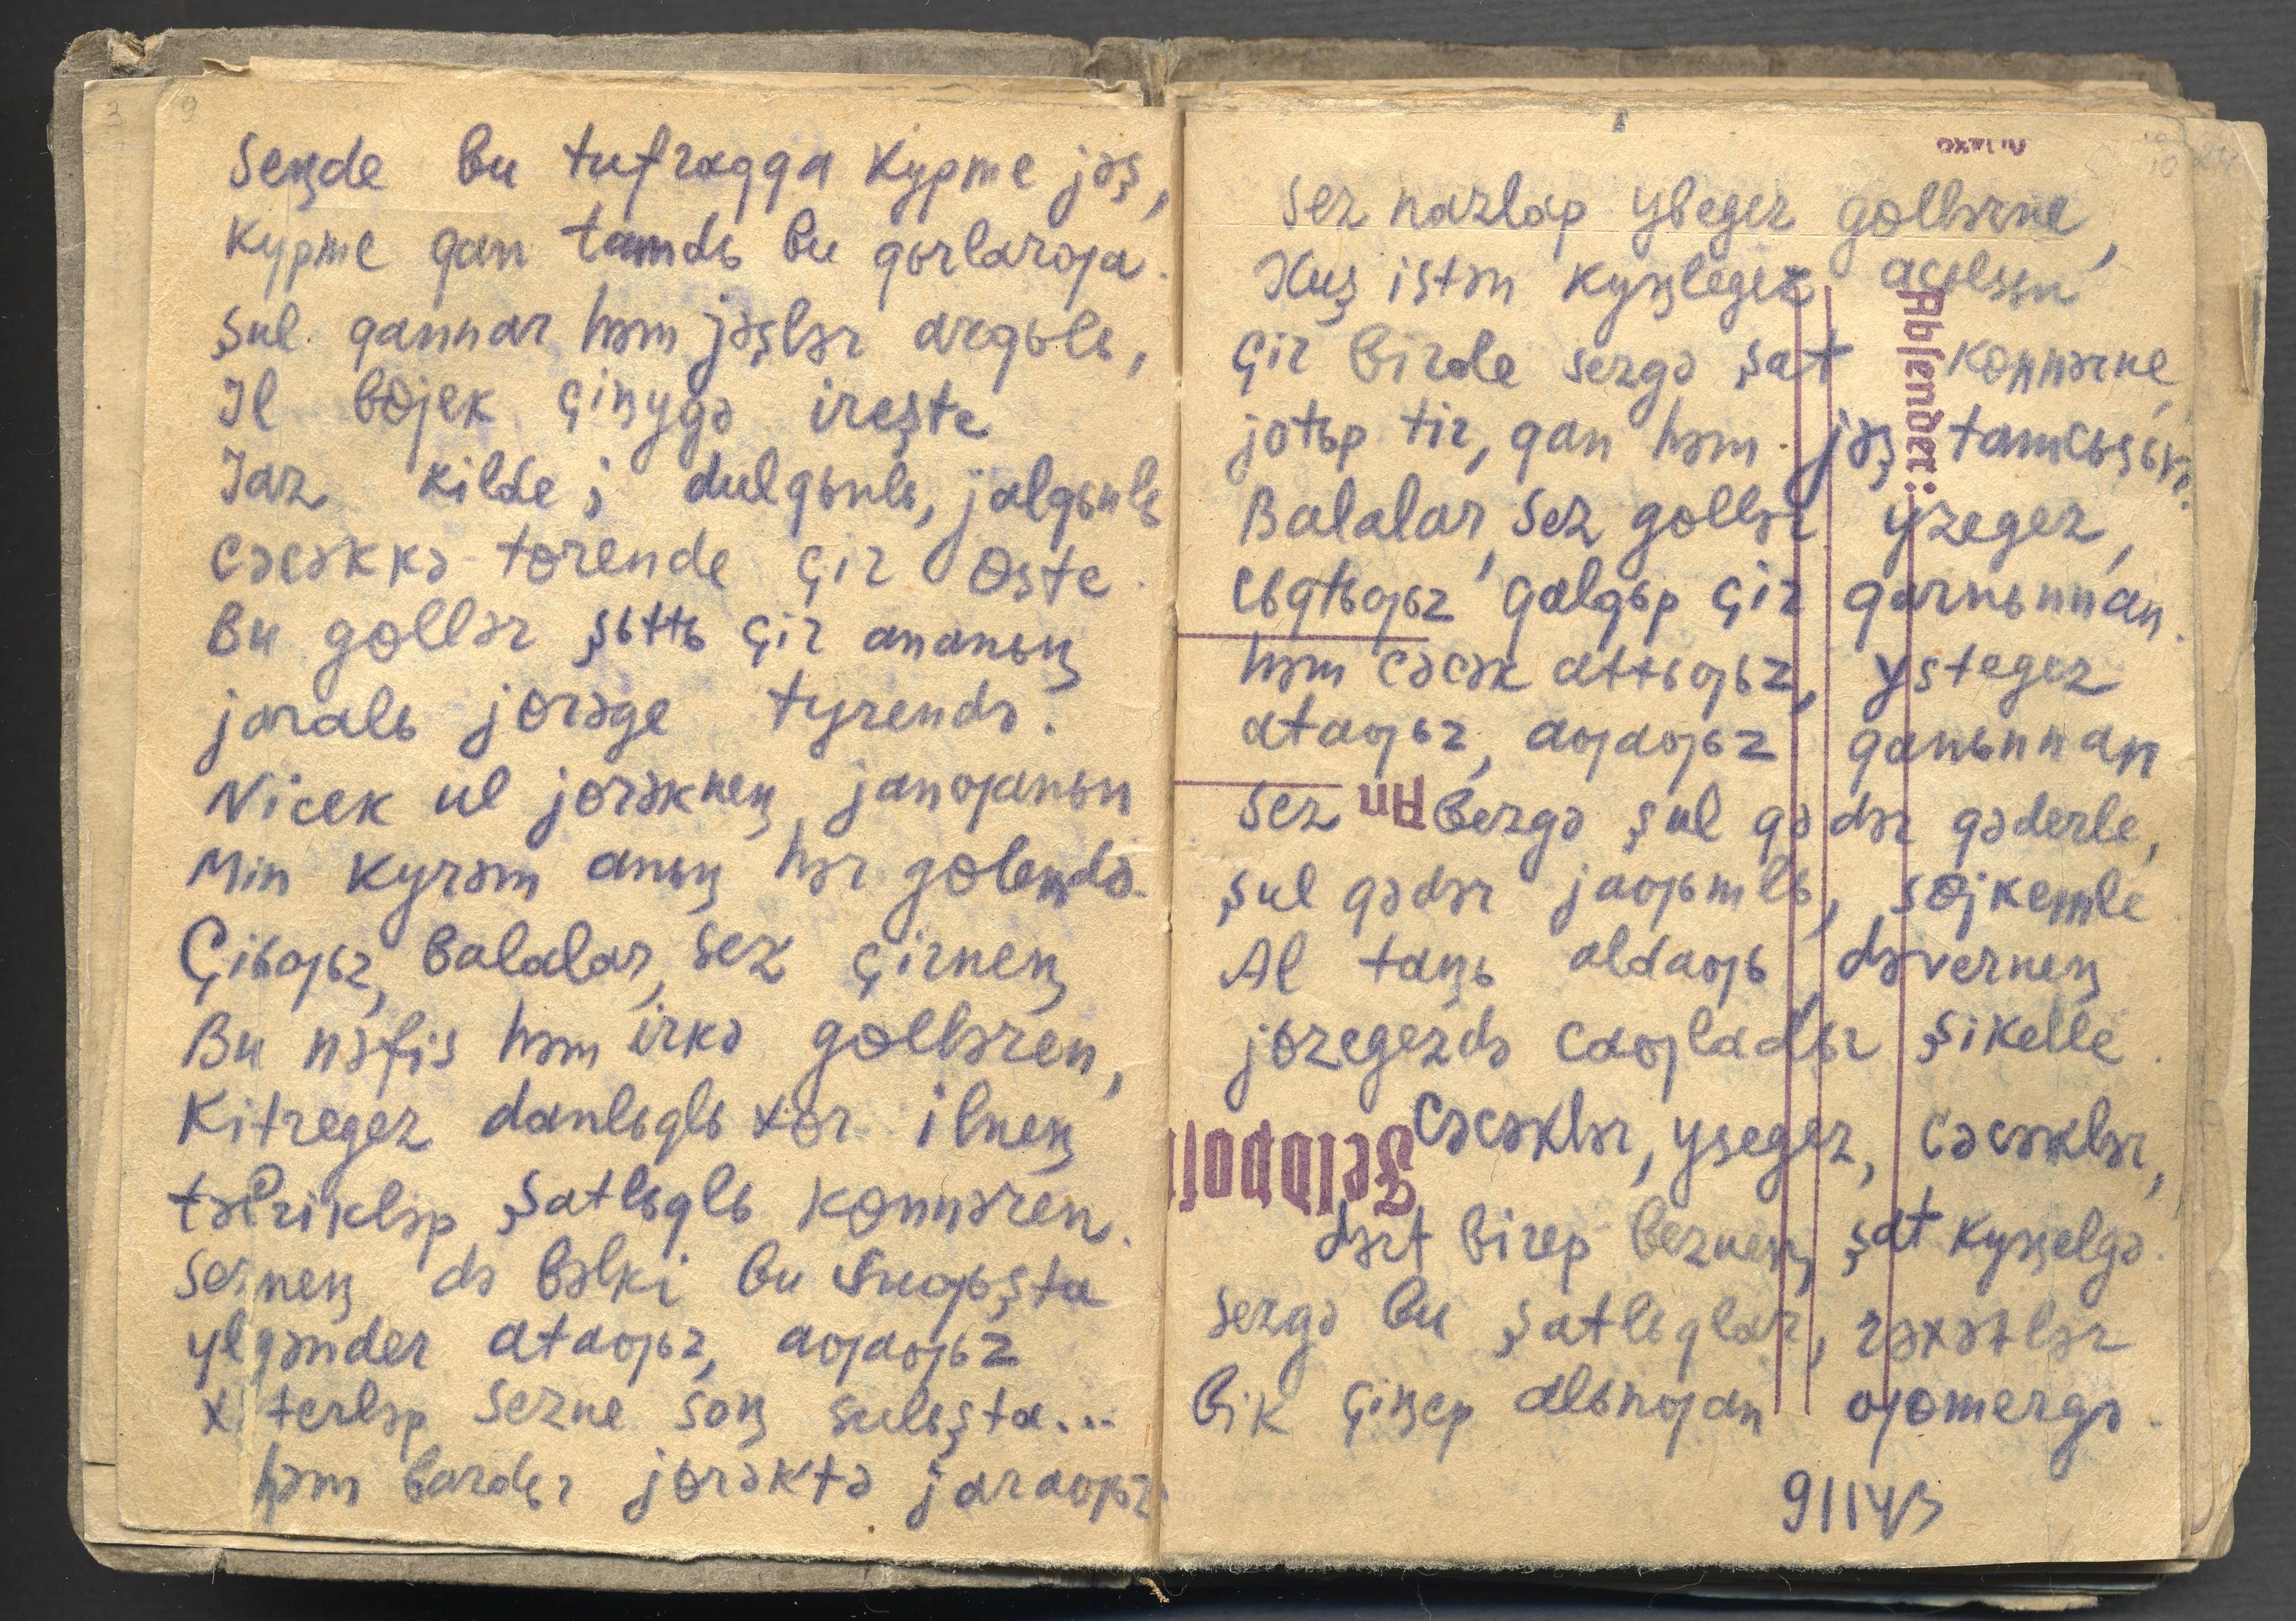 9
3
Seꞑde bu tufraqqa kypme jəş,
kypme qan tamdь bu qьrlarƣa.
şul qannar həm jəşlər arqьlь,
Il bɵjek çiꞑygə ireşte
Jaz kilde; dulqьnlь, jalqьnlь
cəcəkkə tɵrende çir ɵste.
Bu gɵllər şьttь çir ananьꞑ
jaralь jɵrəge tyrendə.
Nicek ul jɵrəkneꞑ janƣanьn
Min kyrəm anьꞑ hər gɵlendə.
Çiьƣьz, balalar, sez çirneꞑ
Bu nəfis həm irkə gɵlləren,
Kitregez danlьqlь xɵr ilneꞑ
təbrikləp şatlьqlь kɵnnəren.
Sezneꞑ də bəlki bu suƣьşta
ylgənder ataƣьz, aƣaƣьz
xəterləp sezne soꞑ sulьşta...
həm bardьr jɵrəktə jaraƣьz
10
Sez nazlap ybegez gɵllərne,
Xuş istən kyꞑlegez acьlsьn
çir birde sezgə şat kɵnnərne,
jotьp tir, qan həm jəş tamcьsьn.
Balalar, sez gɵllər yzegez,
cьqtьƣьz qalqьp çir qarnьnnan.
həm cəcək attьƣьz, ystegez
ataƣьz, aƣaƣьz qanьnnan
Sez bezgə şul qədər qəderle,
şul qədər jaƣьmlь, sɵjkemle
Al taꞑь aldaƣь dəverneꞑ
jɵzegezdə caƣladьr şikelle.
Cəcəklər, ysegez, cəcəklər,
dərt birep bezneꞑ şat kyꞑelgə.
Sezgə bu şatlьqlar, rəxətlər
bik çiꞑep alьnƣan ƣɵmergə.
9II43
Absender:
An
Feldpos